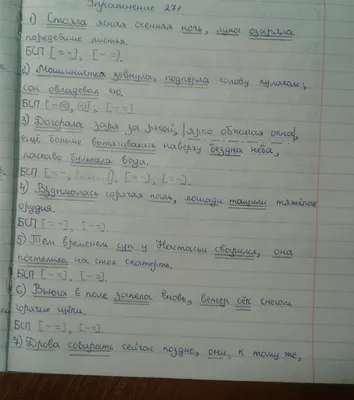 Упражнение 271
1) Стояла ясная осенняя ночь, луна озаряла
поредевшие листья.
БСП [= -], [- =].
2) Машинистка зевнула, подпёрла голову кулаком,
сон овладевал ею.
БСП [- =, =], [- =].
3) Догорала заря за рекой, ярко обжигая окна,
ещё больше вытягивалась наверху бездна неба,
ласково бумкала вода.
БСП
4) Вздымалась горячая пыль, лошади тащили тяжёлое
орудия.
БСП [= -], [- =].
5) Тем временем суп у Настасьи сварился, она
постелила на стол скатерть.
БСП [- =], [- =].
6) Вьюга в поле запела вновь, ветер сёк снегом
горячие щёки.
БСП [- =], [- =].
7) Дрова собирать сейчас поздно, они, к тому же,